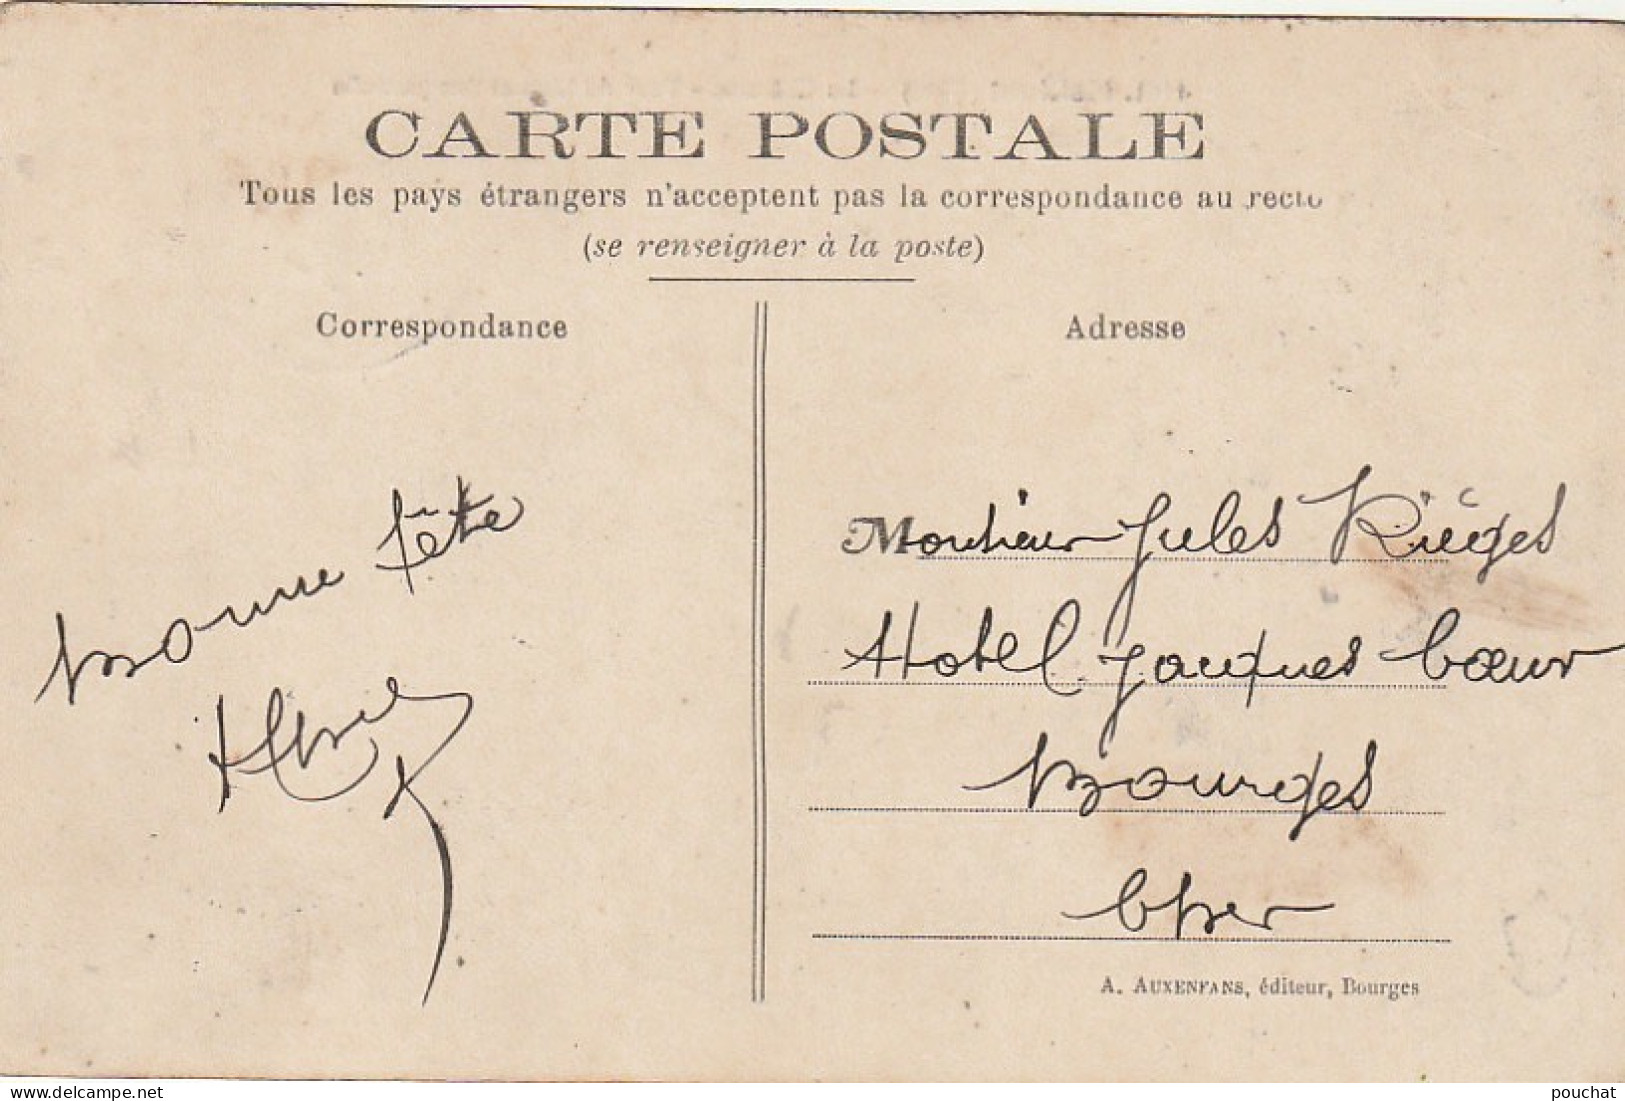 CARTE POSTALE
Tous les pays étrangers n'acceptent pas la correspondance au recto
(se renseigner à la poste)
Correspondance
Adresse
Bonne fête
Monsieur Jules
Hotel Jacques Coeur
Bourges
Cher
A. AUXENFANS, éditeur, Bourges
www.delcampe.net
pouchat